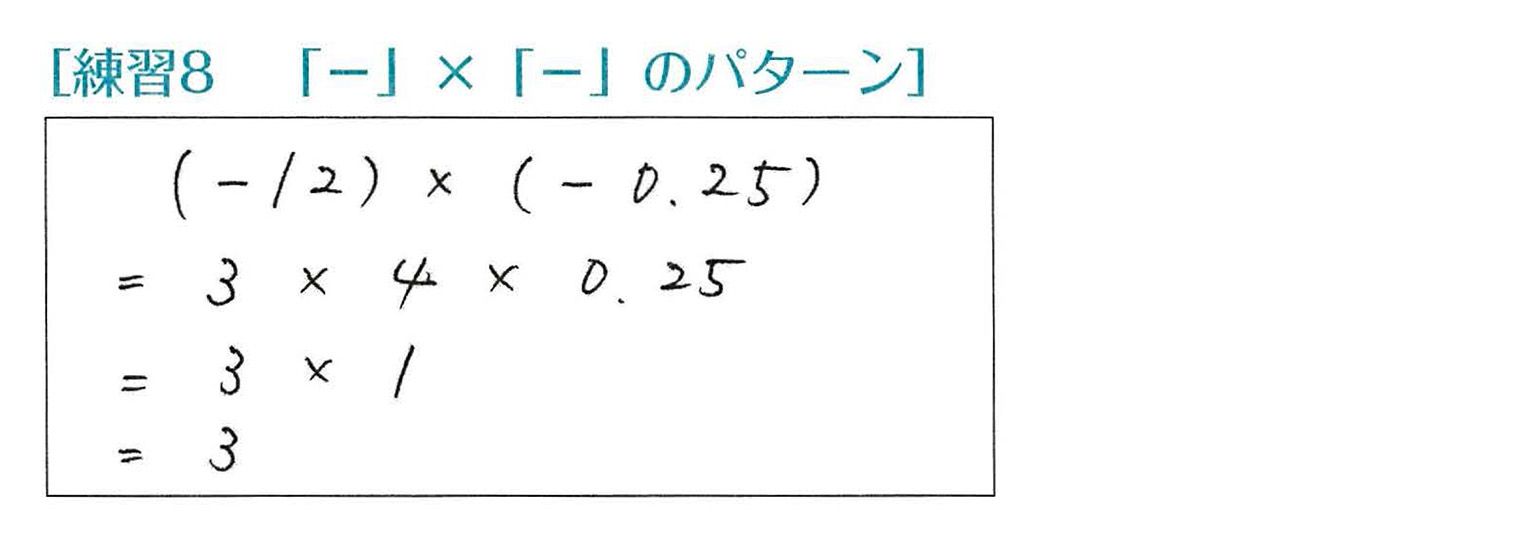 [練習8 「−」×「−」のパターン]
(-12) × (- 0.25)
= 3 × 4 × 0.25
= 3 × 1
= 3